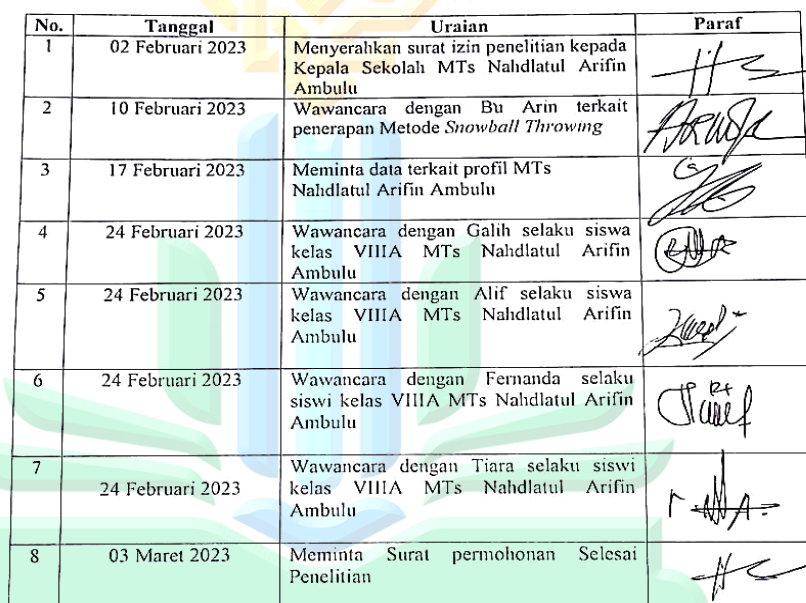 No. Tanggal Uraian Paraf
1 02 Februari 2023 Menyerahkan surat izin penelitian kepada
Kepala Sekolah MTs Nahdlatul Arifin
Ambulu
2 10 Februari 2023 Wawancara dengan Bu Arin terkait
penerapan Metode Snowball Throwing
3 17 Februari 2023 Meminta data terkait profil MTs
Nahdlatul Arifin Ambulu
4 24 Februari 2023 Wawancara dengan Galih selaku siswa
kelas VIIIA MTs Nahdlatul Arifin
Ambulu
5 24 Februari 2023 Wawancara dengan Alif selaku siswa
kelas VIIIA MTs Nahdlatul Arifin
Ambulu
6 24 Februari 2023 Wawancara dengan Fernanda selaku
siswi kelas VIIIA MTs Nahdlatul Arifin
Ambulu
7 Wawancara dengan Tiara selaku siswi
24 Februari 2023 kelas VIIIA MTs Nahdlatul Arifin
Ambulu
8 03 Maret 2023 Meminta Surat permohonan Selesai
Penelitian